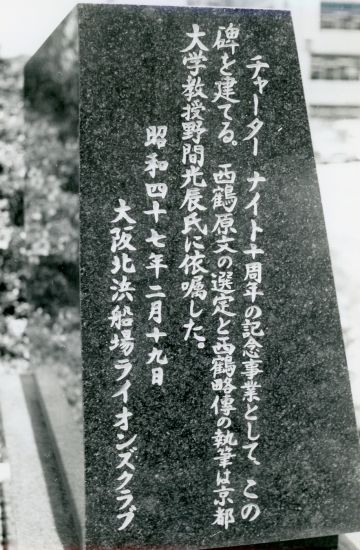 チャーター ナイト十周年の記念事業として、この
碑を建てる。西鶴原文の選定と西鶴略傳の執筆は京都
大学教授野間光辰氏に依嘱した。
昭和四十七年二月十九日
大阪北浜船場ライオンズクラブ